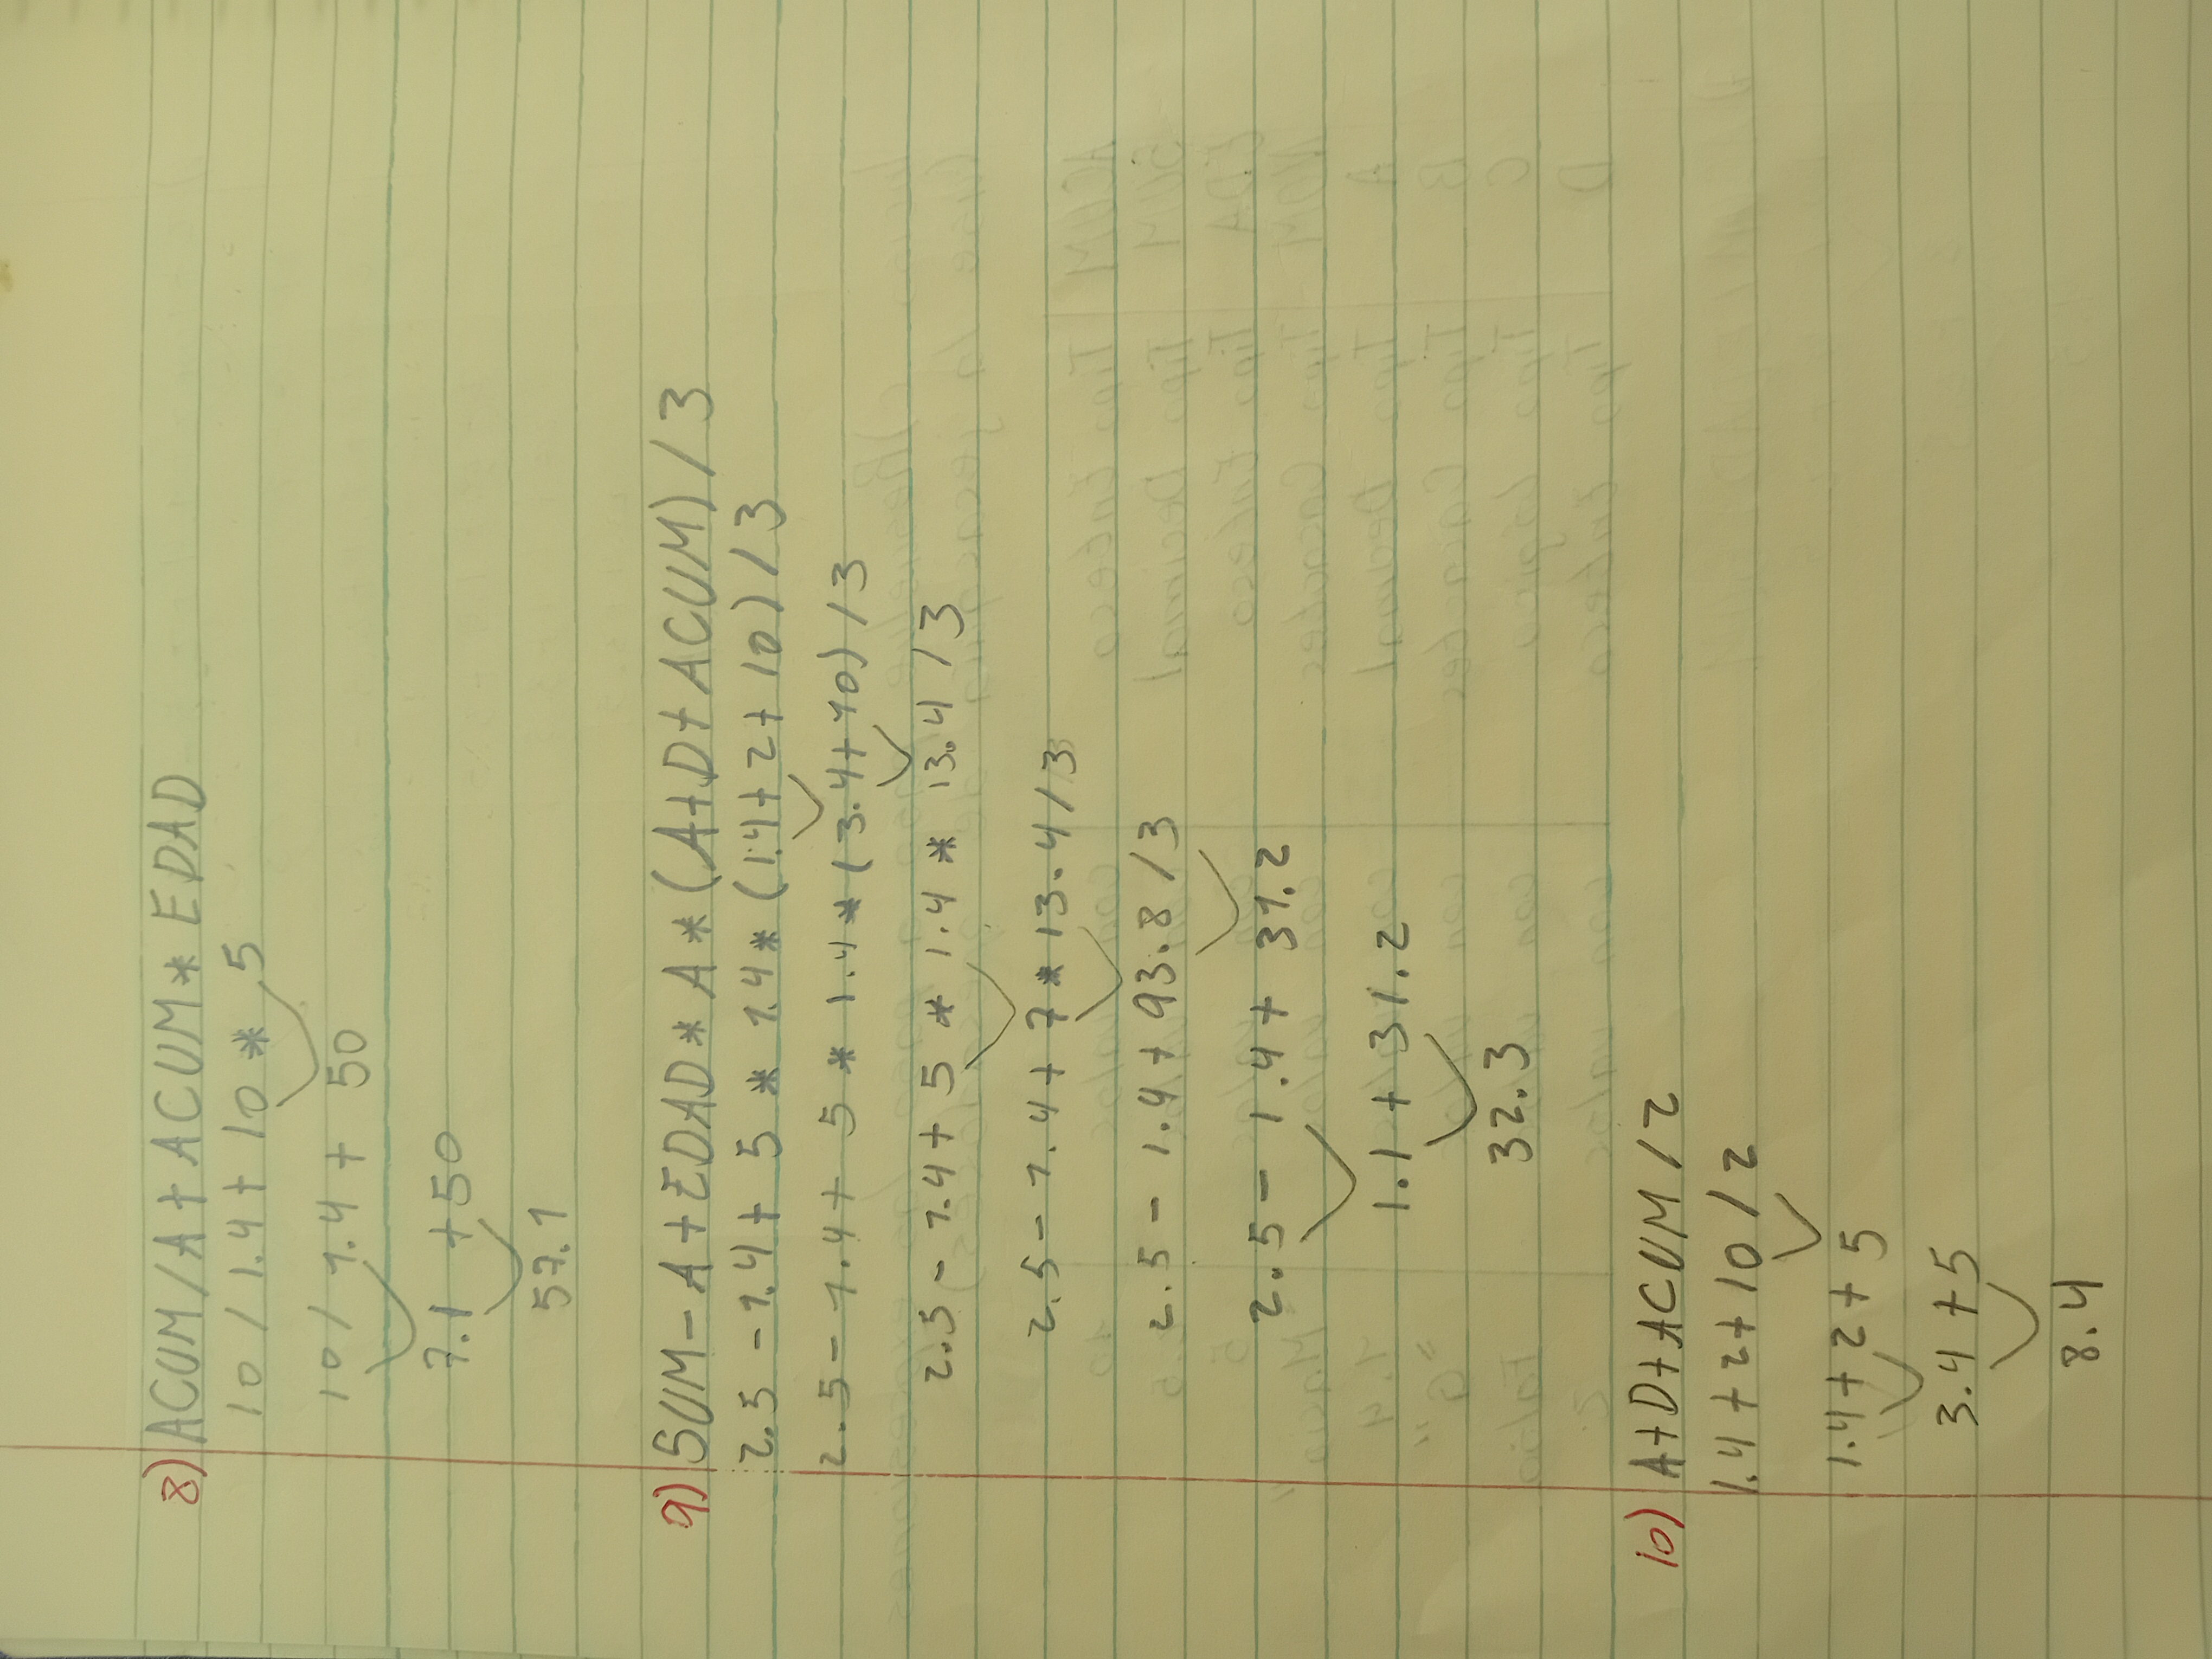 8) ACUM/A+ACUM*EDAD
10/1.4+10*5
10/1.4+50
7.1+50
57.1
9) SUM-A+EDAD*A*(A+D+ACUM)/3
2.5-1.4+5*1.4*(1.4+2+10)/3
2.5-1.4+5*1.4*(3.4+10)/3
2.5-1.4+5*1.4*13.4/3
2.5-1.4+7*13.4/3
2.5-1.4+93.8/3
2.5-1.4+31.2
1.1+31.2
32.3
10) A+D+ACUM/2
1.4+2+10/2
1.4+2+5
3.4+5
8.4